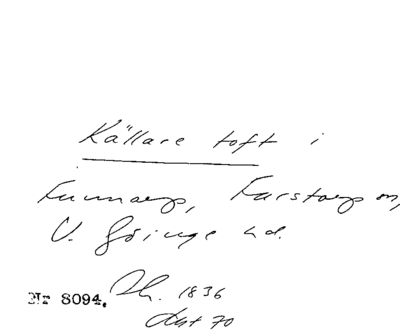 Källare toft i
Funnarp, Farstorp sn,
V. Göinge hd.
Nr 8094. Sh. 1836
Avst 70